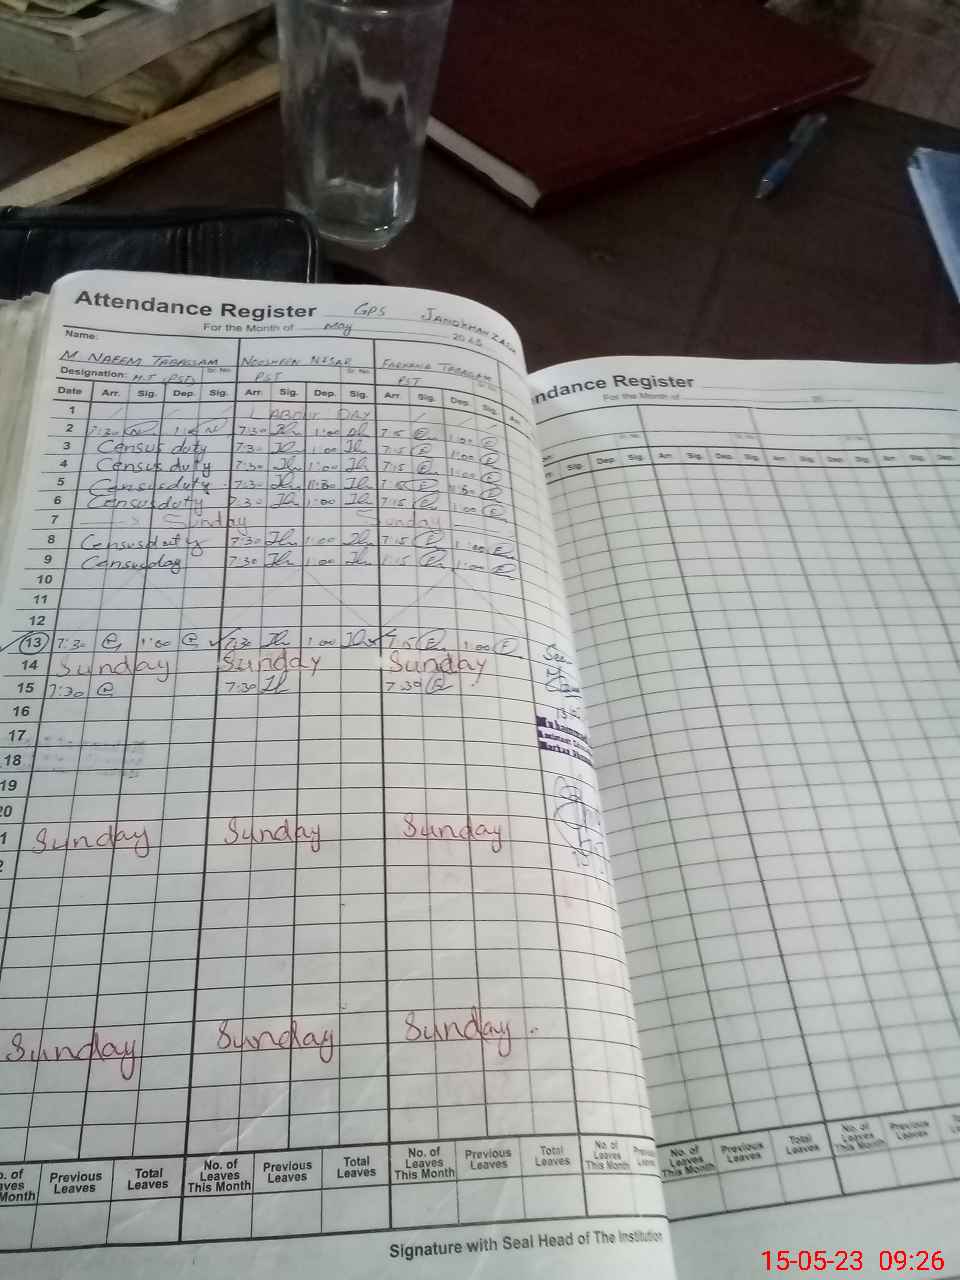 Attendance Register GPS
For the Month of May 20
Name:
M. NAEEM TABASSAM NOSHEEN NISAR FARHANA TABASSAM
Designation: H.T (PST) Sr. No. PST Sr. No. PST
Date Arr. Sig. Dep. Sig. Arr. Sig. Dep. Sig. Arr. Sig. Dep. Sig. Arr.
1 LABOUR DAY
2 7:30 7:30 1:00 7:15 1:00
3 Census duty 7:30 1:00 7:15 1:00
4 Census duty 7:30 1:00 7:15 1:00
5 Census duty 7:30 7:15
6 Census duty 7:30 1:00 7:15 1:00
7 Sunday Sunday
8 Census duty 7:30 1:00 7:15 1:00
9 7:30 1:00 1:00
10
11
12
13 7:30 1:00 7:30 1:00 7:15 1:00
14 Sunday Sunday Sunday
15 7:30 7:30 7:30
16
17
18
19
20
1 Sunday Sunday Sunday
2
Sunday Sunday Sunday
Seen
Muhammad
Assistant
Markaz
o. of Leaves Month Previous Leaves Total Leaves No. of Leaves This Month Previous Leaves Total Leaves No. of Leaves This Month Previous Leaves Total Leaves No. of Leaves This Month
Signature with Seal Head of The Institution
ndance Register
For the Month of 20
Sig. Dep. Sig. Arr. Sig. Dep. Sig. Arr. Sig. Dep.
No. of Leaves This Month Previous Leaves Total Leaves No. of Leaves This Month Previous Leaves
15-05-23 09:26